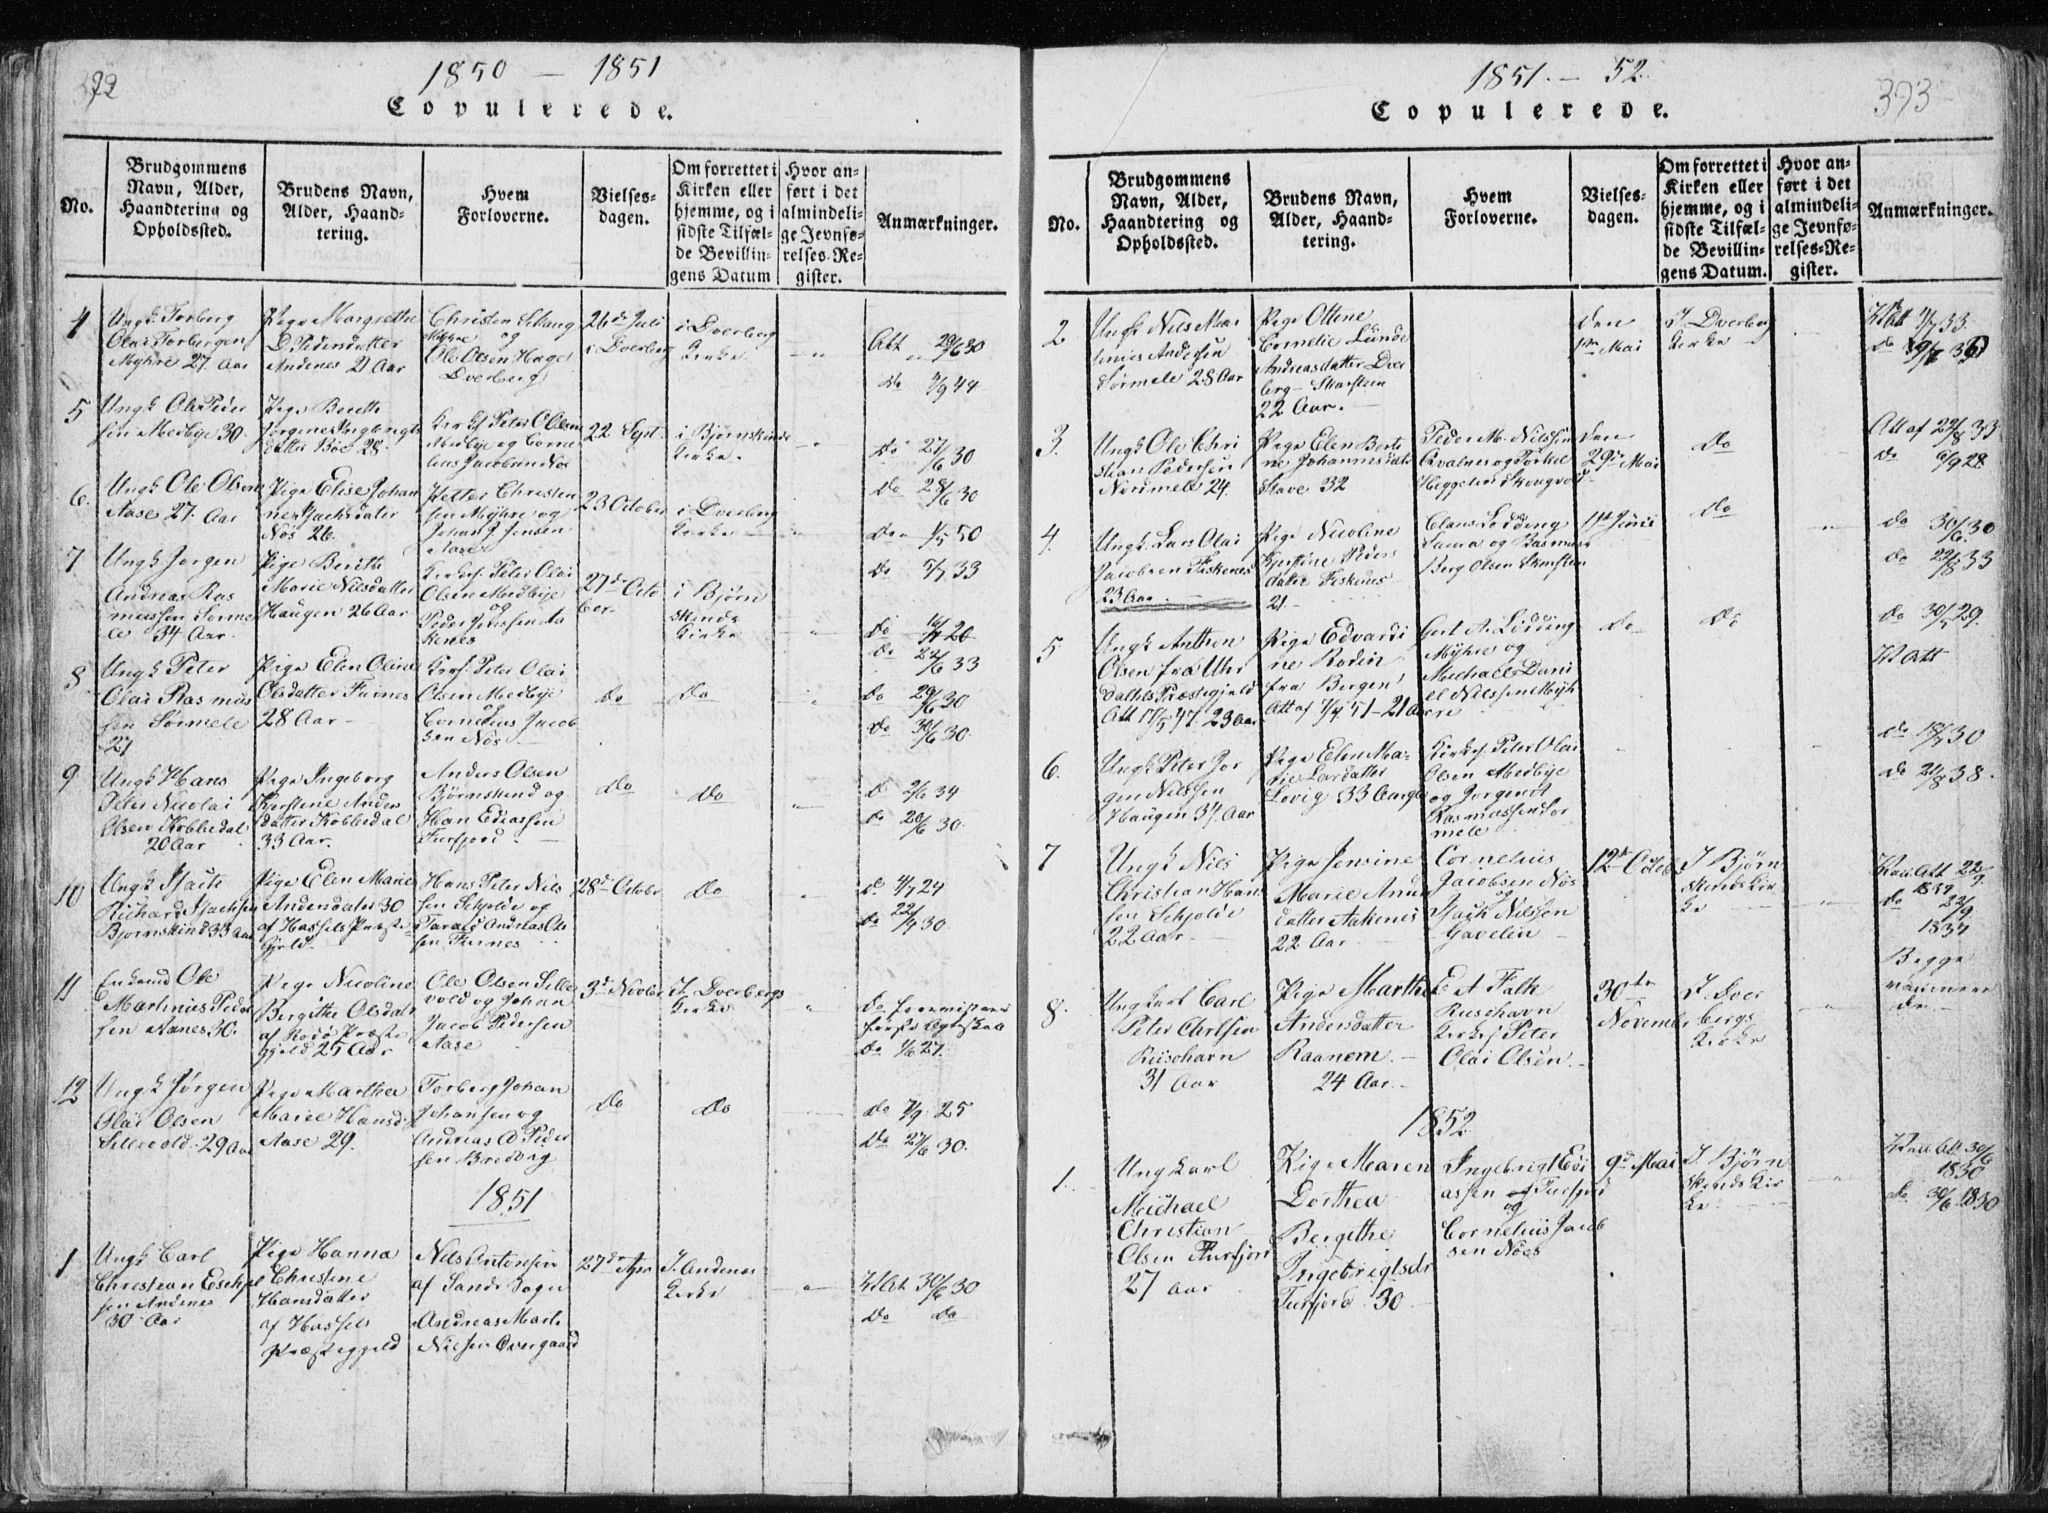 1850 – 1851
Copulerede.
No.
Brudgommens
Navn, Alder,
Haandtering og
Opholdssted.
Brudens Navn,
Alder, Haand-
tering.
Hvem
Forloverne.
Vielses-
dagen.
Om forrettet i
Kirken eller
hjemme, og i
sidste Tilfæl-
de Bevillin-
gens Datum
Hvor an-
ført i det
almindeli-
ge Jevnfø-
relses-Re-
gister.
Anmærkninger.
4
Ungk Torberg
Olai Torbergsen
Myhre 27 Aar
Pige Margrethe
D. Pedersdatter
Andenes 21 Aar
Christen
Myhre og
Ole Olsen Hage
Dverberg
26de Juli
i Dverberg
i Dverberg
Kirke
Att 29/6 30
do 7/9 44
5
Ungk Ole Peder
sen Medbye 30.
Pige Berethe
datter Böe 28.
Kirks. Peter O Olsen
Medbye og Corne
lius Jacobsen Nös
22 Sept.
i Bjørnskinds
Kirke.
Do 27/6 30
6.
Ungk Ole Olsen
Aase 27. Aar
Pige Elise Johan
ne Isachsdatter
Nös 26.
Petter Christen
sen Myhre og
Johan J. Jensen
Aase
23 October
i Dverberg
Kirke
Do 28/6 30
Do 1/5 50
7
Ungk Jørgen
Andreas Ras
mussen Sørme
le 34 Aar.
Pige Berith
Marie Nilsdatter
Haugen 26 Aar
Kirkes. Peter Olai
Olsen Medbye
og
Peder Jensen Aa
kenes
27de Octo
ber.
i Bjørn
skinds
Kirke
Do 5/7 33
Do
8
Ungk Peter
Olai Rasmus
sen Sørmele
27
Pige Elen Oline
Olsdatter Furnes
28 Aar
Kirks. Peter Olai
Olsen Medbye
og
Cornelius Jacob
sen Nös
do
do
do 33
do 29/6 30
do 30/6 30.
9
Ungk Hans
Peter Nicolai
Olsen Kobbedal
20 Aar
Pige Ingeborg
Kjerstine Anders
datter Kobbedal
33 Aar.
Anders Olsen
Bjørnskind og
Hans Ediassen
Fursfjord
do
do
d 2/6 34
do 20/6 30.
10
Ungk Isach
Richard Isachsen
Bjørnskind 33 Aar
Pige Elen Marie
Andersdatter 30
af Hassels Præste
gjeld
Hans Peter Nils
sen Schjolde og
Tarald Andreas Ol
sen Furnes
28de October
do
do 4/7 24
do 22/7 30.
11
Enkemd Ole
Martinus Peder
sen Aanes 30.
Pige Nicoline
Bergithe Olsdatr
af Rodø Præste
gjeld 25 Aar
Ole Olsen Selle
vold og Johan
Jacob Pedersen
Aase
3de Novbr
I Dverbergs
Kirke
do
do 1/6 27.
12
Ungk Jørgen
Olai Olsen
Sellevold. 29 Aar
Pige Martha
Marie Hansd
Aase 29.
Torberg Johan
Johansen og
Andreas O Peder
sen Bredvig
do
do
do 7/9 25
do 27/6 30.
1851
1
Ungk Carl
Christian Eschel
sen Andenes
30 Aar
Pige Hanna
Christine
Hansdatter
af Hassels
Præstegjeld
Nils Antonsen
af Sands Sogn
Andreas Mart.
Nielsen Overgaard
27de Apr
I Andenes
Kirke
Vd Att 30/6 30
Do Do
1851. – 52.
393
Copulerede.
No.
Brudgommens
Navn, Alder,
Haandtering og
Opholdssted.
Brudens Navn,
Alder, Haand-
tering.
Hvem
Forloverne.
Vielses-
dagen.
Om forrettet i
Kirken eller
hjemme, og i
sidste Tilfæl-
de Bevillin-
gens Datum.
Hvor an-
ført i det
almindeli-
ge Jevnfø-
relses-Re-
gister.
Anmærkninger.
2
Ungk Nils Mar
tinius Andersen
Sørmele 28 Aar
Pige Ottene
Cornelie Lunde
Andreasdatter Dver
berg – Skarstein
22 Aar.
Den
1ste Mai
I Dverberg
Kirke
33.
do
3.
Ungk Ole Chri
stian Pedersen
Nordmele 24.
Pige Elen Berte
ne Johannesdatr
Stave 32
Peder M. Nilssen
Qvalnes og Torkel
Heggelund Skougvold
den
29de Mai
do
Att af 22/8 33
do 6/9 28
4.
Ungk. Lars Olai
Jacobsen Fiskenes
23 Aar
Pige Nicoline
Kjerstine Peders
datter Fiskenes
21
Claus Lodding
Saura og Rasmus
Berg Olsen Skarstein
11te Juni
do
do 30/6 30
do 22/8 33
5
Ungk Anthon
Olsen fra Uhr
dahls Præstegjeld
Att 17/5 47. 23 Aar
Pige Edvardi
ne Rodin
fra Bergen,
Att af 1/4 51 – 21 Aar
Gert A. Lodding
Myhre og
Michael Dani
el Nilssen Myh
re
do
do
do 30/5 29.
Vd Att
6.
Ungk Peter Jør
gen Nilsen
Haugen 34 Aar
Pige Elen Ma-
rie Larsdatter
Lovig 33 Aar
Kirks. Peter Olai
Olsen Medbye
og Jørgen A
Rasmussen Sør
mele
do 18/7 30
do 24/8 38.
7
Ungk Nils
Christian Han
sen Schjolde
22 Aar
Pige Jensine
Marie Anun
datter Aakenes
22 Aar
Cornelius
Jacobsen Nös
og
Isach Nilssen
Gavelen
12te Octob
I Bjørn
skinds Kir
ke
Vacc Att 22/9
1837
do 22/9
1837
8.
Ungkarl Carl
Peter Carlsen
Risøhavn
31 Aar
Pige Marthe
Andersdatter
Raanem.
24 Aar.
E A Falk
Risøhavn
Kirks. Peter
Olai Olsen.
30te
Novembr
I Dver
bergs
Kirke
Begge
vaccinere
de
1852
1.
Ungkarl
Michael
Christian
Olsen Fursfjord
27 Aar
Pige Maren
Dorthea
Bergithe
Ingebrigtsdr
Fursfjord. 30
Ingebrigt Edi
assen Fursfjord
og
Cornelius Jacob
sen Nöes
9de Mai
I Bjørn
skinds Kir
ke
Vacc Att 30/6
1830
do 30/6 1830